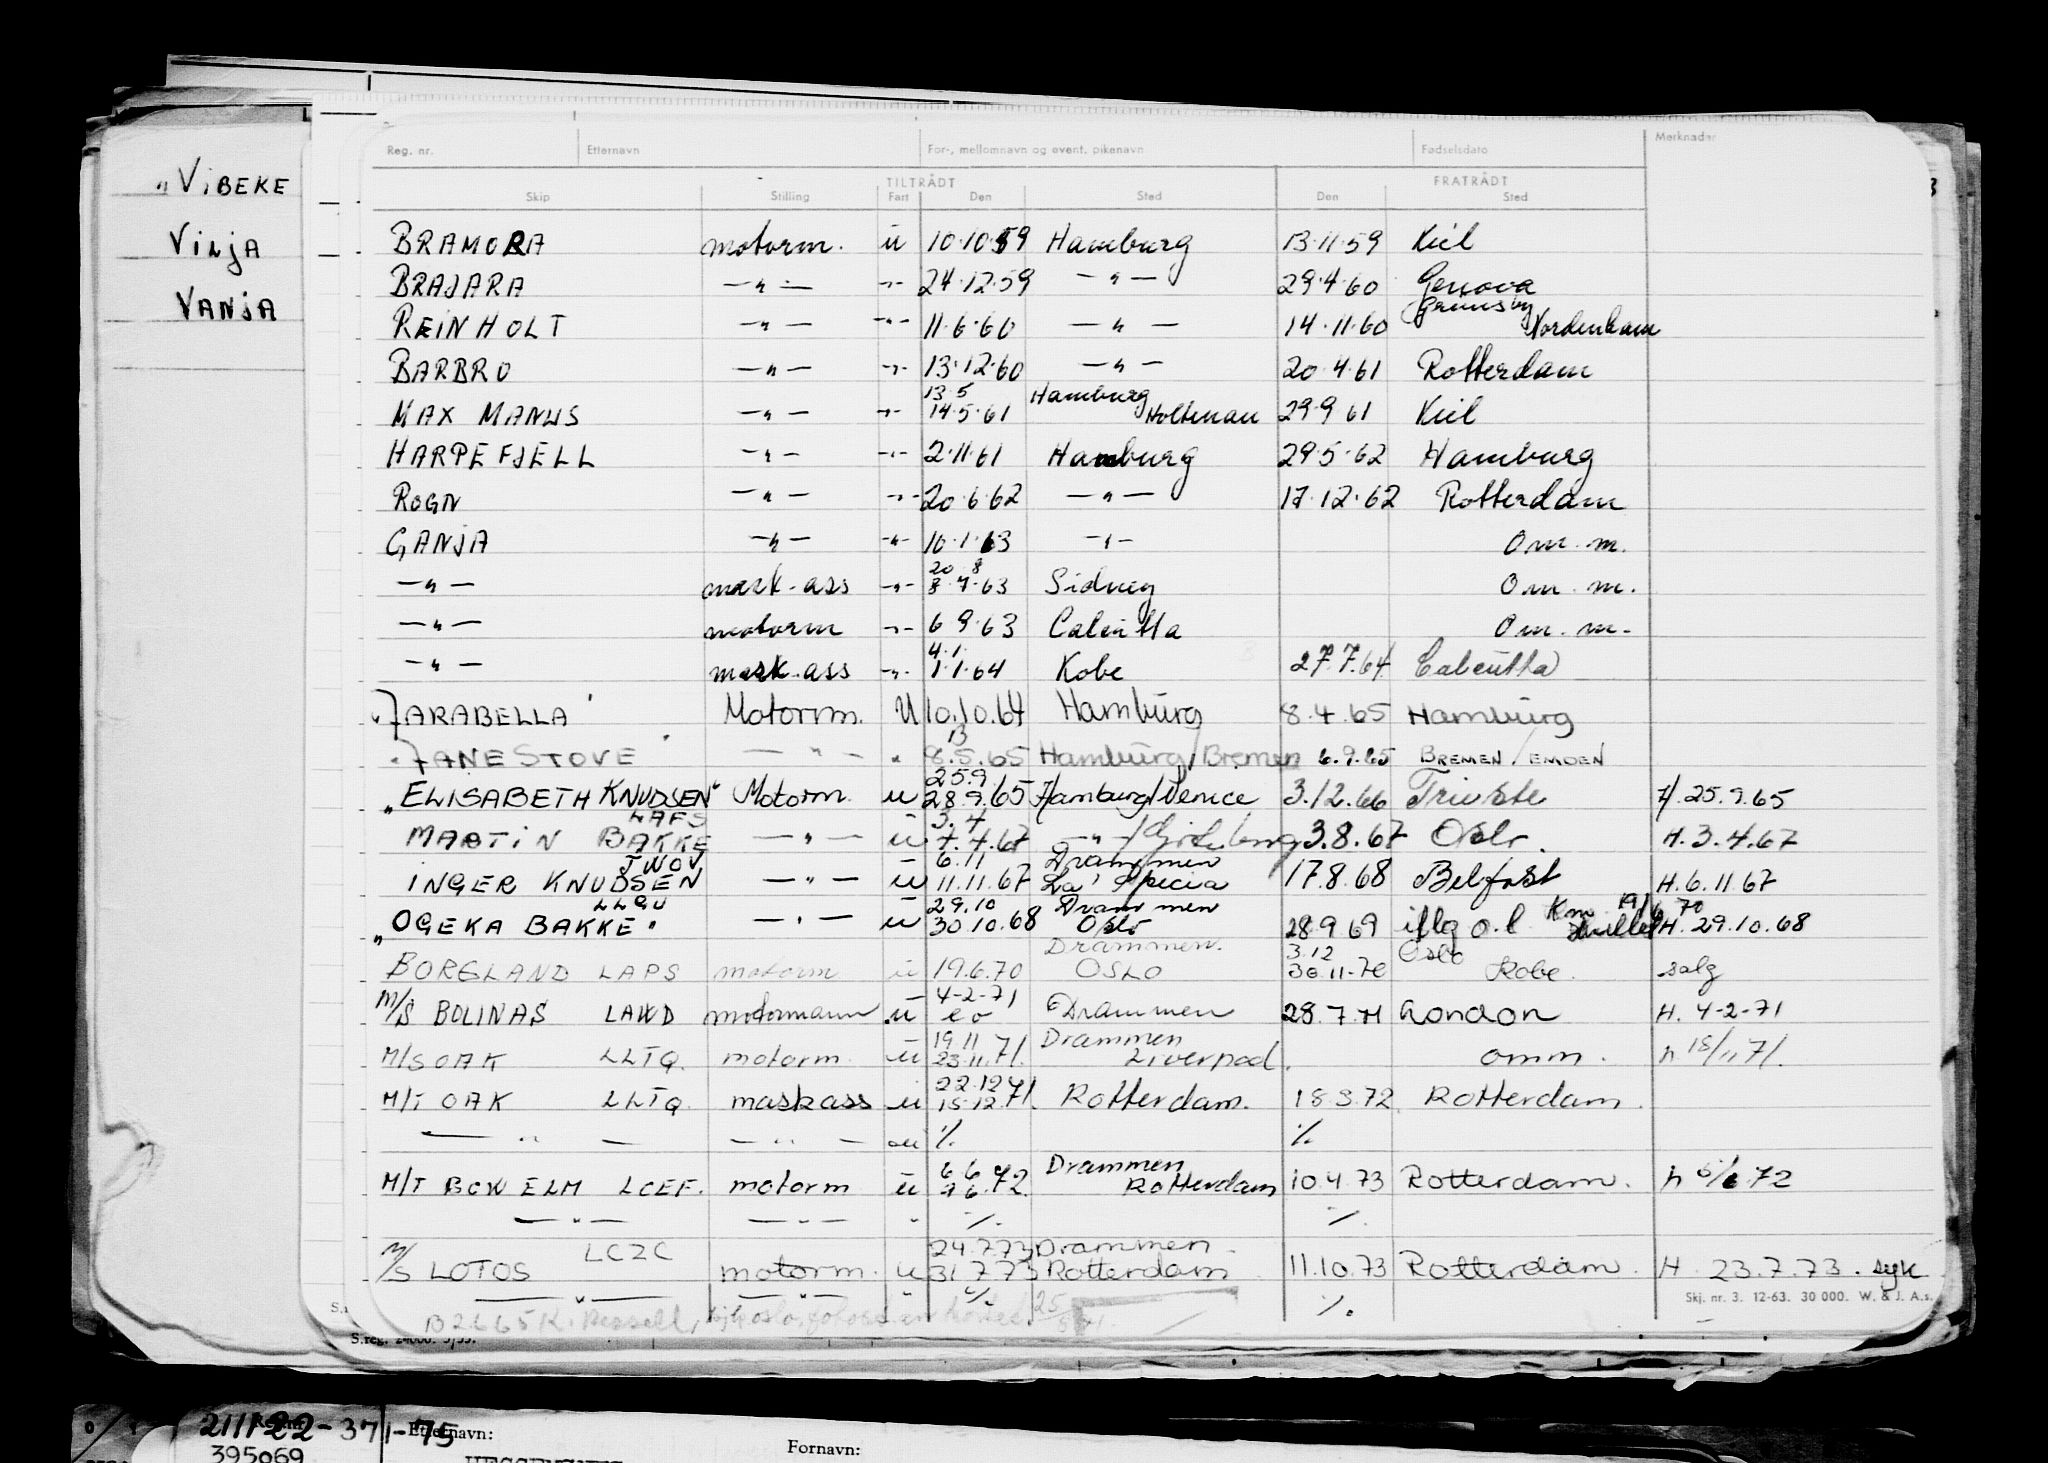 „ VIBEKE
VILJA
VANJA
Reg. nr. Etternavn For-, mellomnavn og event. pikenavn Fødselsdato Merknader
TILTRÅDT FRATRÅDT
Skip Stilling Fart Den Sted Den Sted
BRAMORA motorm. u 10.10.59 Hamburg 13.11.59 Kiel
BRAJARA —„— -„- 24.12.59 —„— 29.4.60 Genova
REINHOLT —„— -„- 11.6.60 —„— 14.11.60 Grimsby Nordenham
BARBRO —„— -„- 13.12.60 —„— 20.4.61 Rotterdam
13 5 Hamburg
MAX MANUS —„— -„- 14.5.61 Holtenau 29.9 61 Kiel
HARPEFJELL —„— -„- 2.11.61 Hamburg 29.5.62 Hamburg
ROGN —„— -„- 20.6.62 —„— 17.12.62 Rotterdam
GANJA —„— -„- 10.1.63 —„— Om. m.
20 8
—„— mask-ass -„- 8.7.63 Sidney Om. m.
—„— motorm -„- 6 9.63 Calcutta Om. m.
4.1.
—„— mask-ass -„- 1.1.64 Kobe 27.7.64 Calcutta
„JARABELLA" Motorm. U 10.10.64 Hamburg 8.4.65 Hamburg
13
„JANE STOVE" —„— „ 8.5.65 Hamburg/Bremen 6.9.65 BREMEN/EMDEN
25.9
„ELISABETH KNUDSEN" Motorm. u 28.9.65 Hamburg/Venice 3.12.66 Trieste H. 25.9.65
LAFS 3.4
MARTIN BAKKE —„— u 7.4.67 —„—/Göteborg 3.8.67 Oslo. H. 3.4.67
JWOV 6.11 Drammen
INGER KNUDSEN —„— u 11.11.67 La Spezia 17.8.68 Belfast H. 6.11 67
LLGU 29.10 Drammen
„OGEKA BAKKE" —„— u 30.10.68 Oslo 28.9 69 iflg o.l H. 29.10.68
Drammen. 3.12 Oslo
BORGLAND LAPS motorm u 19.6.70 OSLO 30.11-70 Kobe. salg
4-2-71
M/S BOLINAS LAWD motormann u eo Drammen 28.7.71 London H. 4-2-71
19 11 Drammen
M/S OAK LLTQ. motorm u 23.11.71. Liverpool. omm. h 18/11 71.
22.12
M/T OAK LLTQ. maskass u 15.12.71. Rotterdam. 18 3.72. Rotterdam.
— „ — — „ — au ./. ./.
6 6 Drammen
M/T BOW ELM LCEF. motorm u 9 6.72. Rotterdam 10.4.73 Rotterdam. h 5/6 72
— „ — — „ — „ ./. ./.
LCZC 24.7.73 Drammen
M/S LOTOS motorm. u 31.7.73 Rotterdam 11.10.73 Rotterdam. H. 23.7.73. syk
— „ — — „ — „ ./. ./.
Skj. nr. 3. 12-63. 30 000. W. & J. A.s.
B2665 K.
S.reg. 24000. 5/55.
211122-371-75
Etternavn: Fornavn:
395069